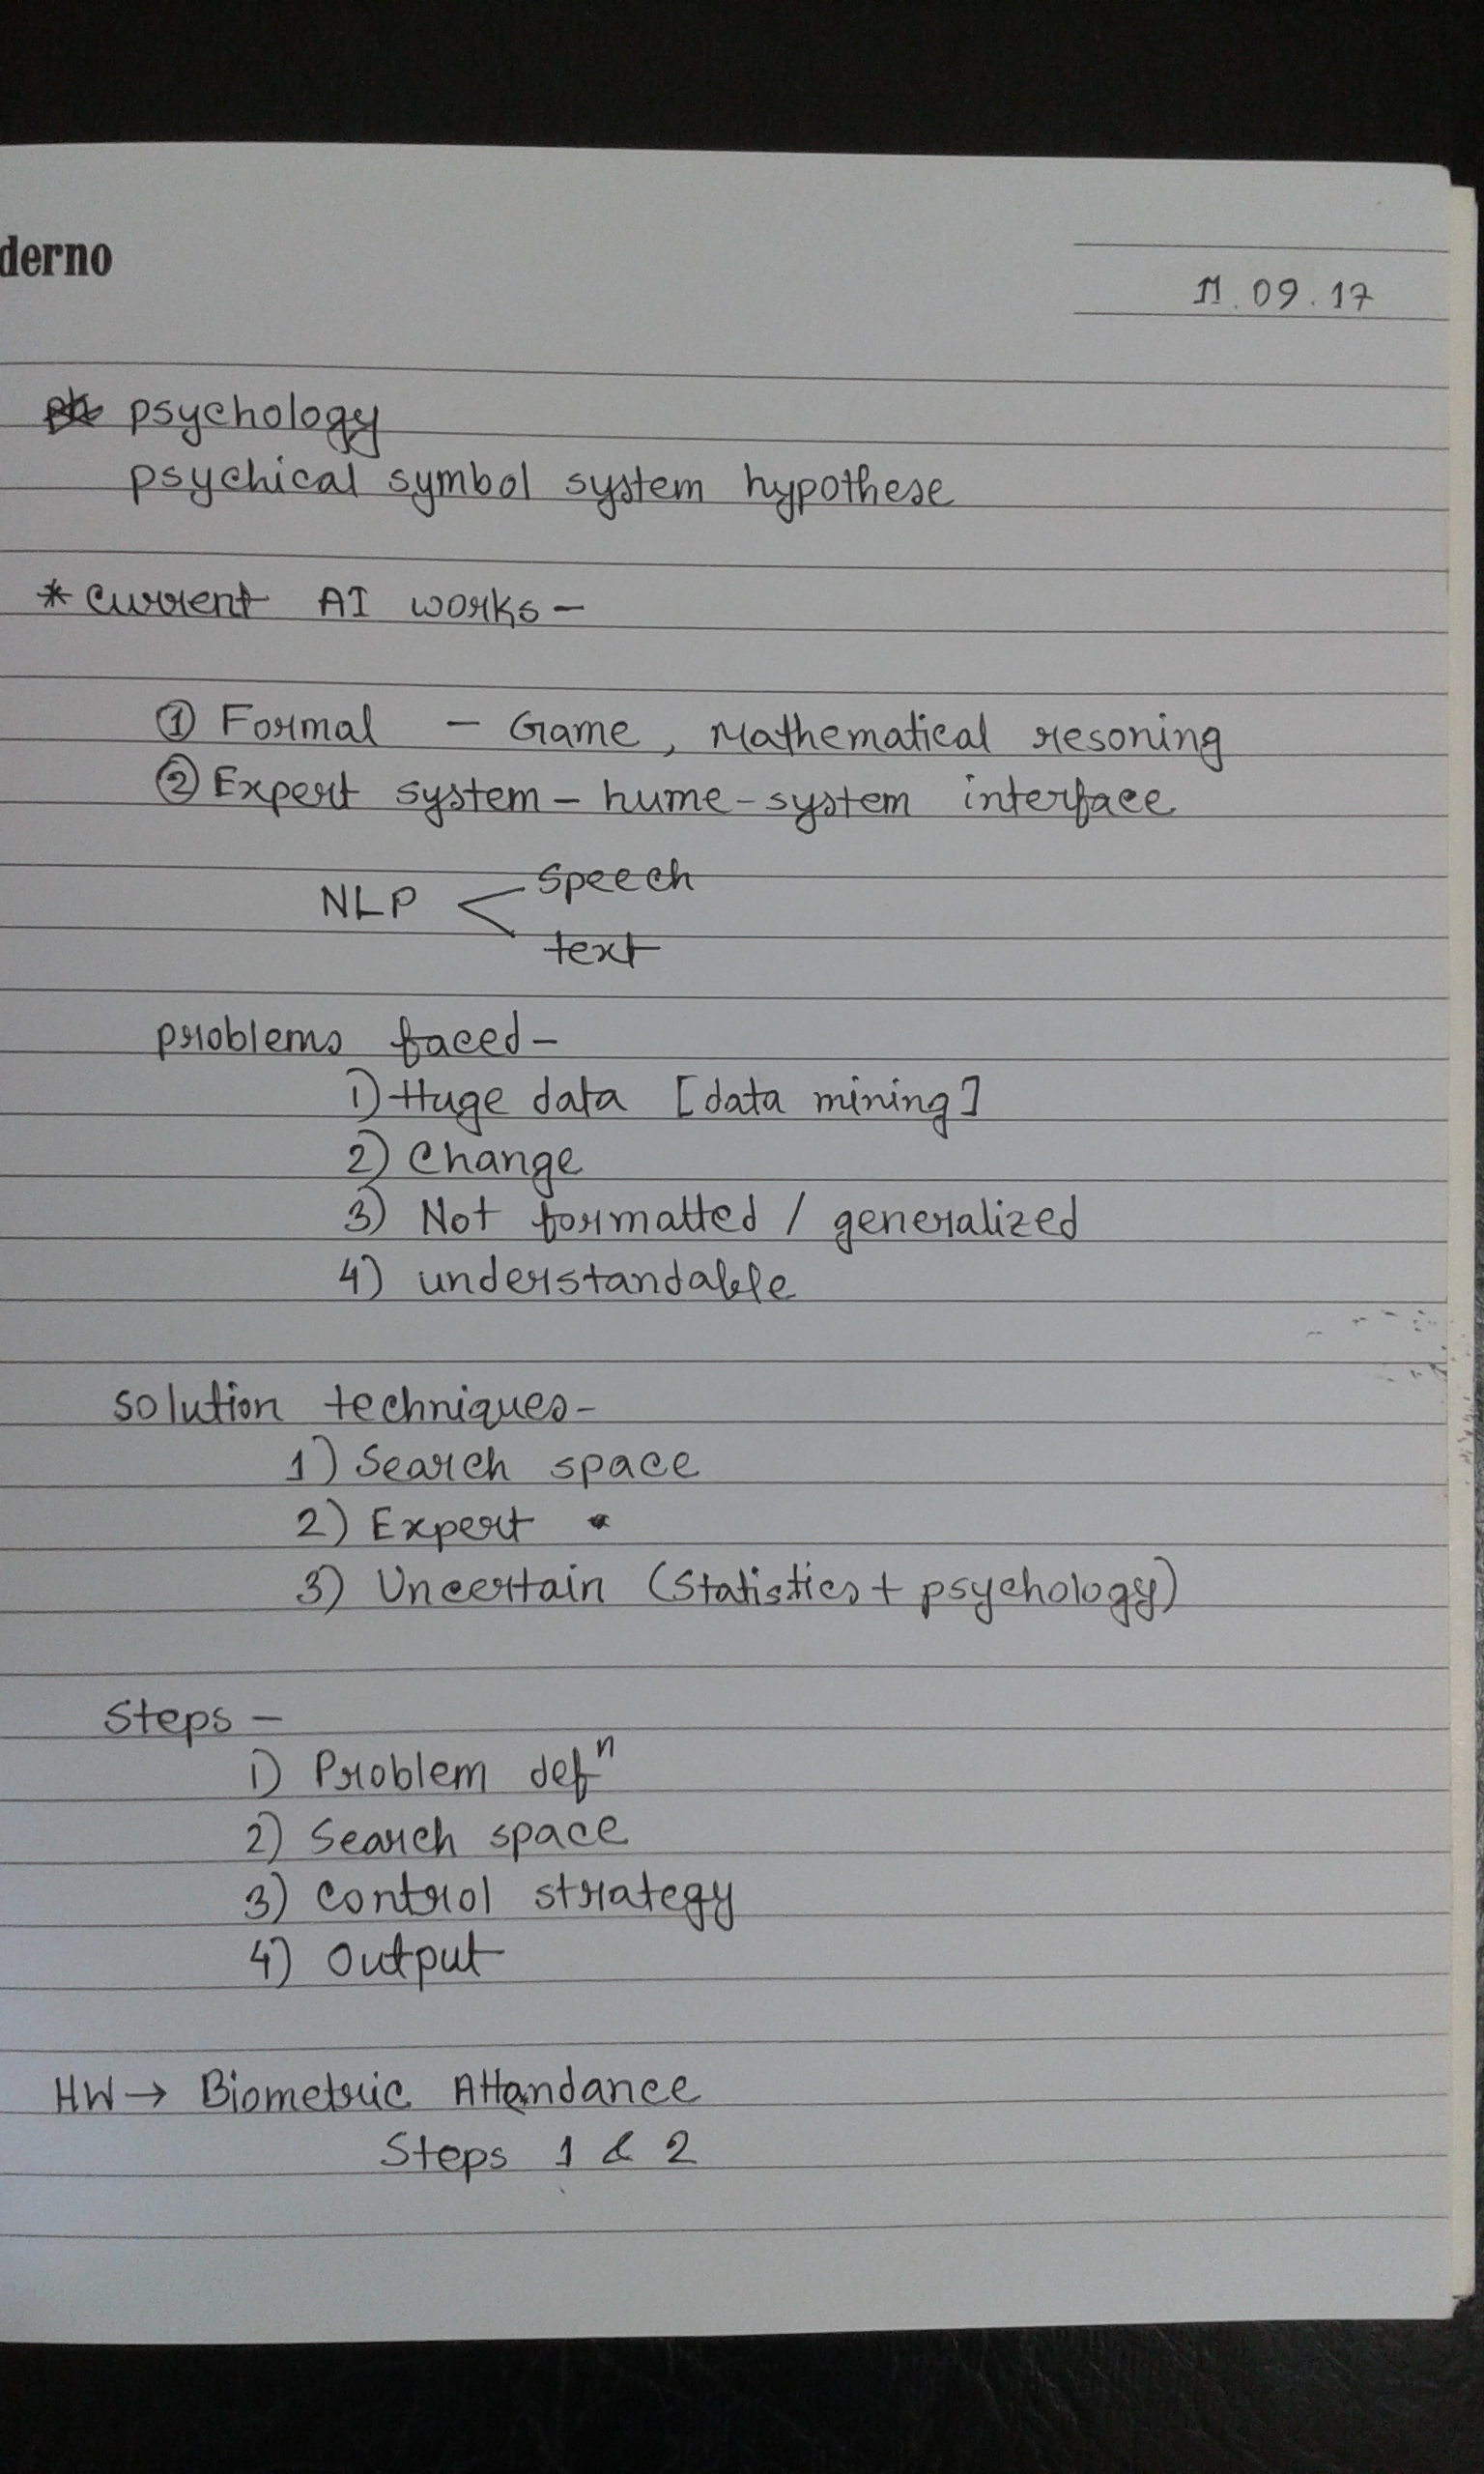 derno
11.09.17
psychology
psychical symbol system hypothese
* Current AI works -
① Formal - Game, Mathematical resoning
② Expert system - hume-system interface
NLP < speech
text
problems faced -
1) Huge data [data mining]
2) Change
3) Not formatted / generalized
4) understandable
solution techniques -
1) Search space
2) Expert
3) Uncertain (statistics + psychology)
Steps -
1) Problem defⁿ
2) Search space
3) control strategy
4) Output
HW → Biometric Attandance
Steps 1 & 2